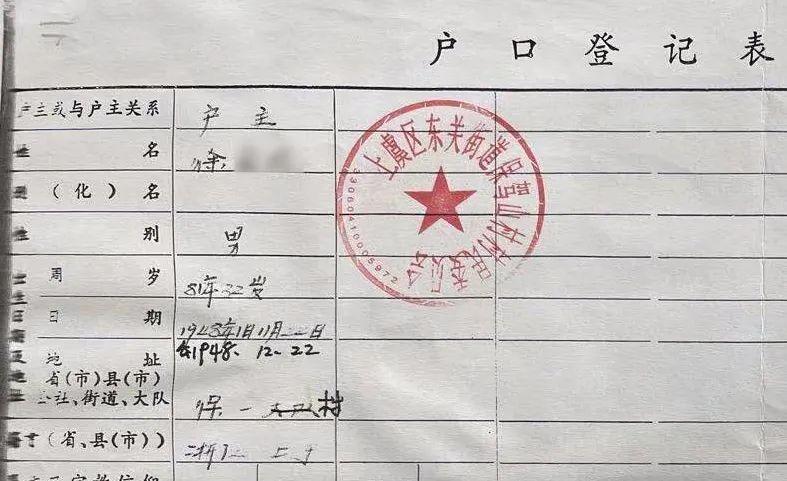 户口登记表
户主或与户主关系 户主
姓名 徐
(化)名
性别 男
周岁 81年32岁
日期 1948年11月22日
1948.12.22
地址
省(市)县(市)
公社、街道、大队 保一大队村
(省、县(市)) 浙江 上
上虞区东关街道保驾山村村民委员会
33060410005972